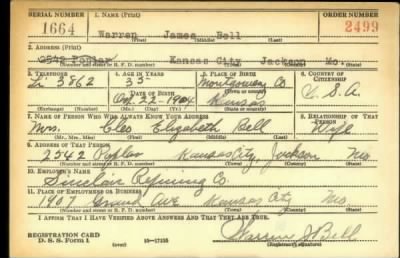 SERIAL NUMBER 1. NAME (Print) ORDER NUMBER
1664 Warren James Bell 2499
(First) (Middle) (Last)
2. ADDRESS (Print)
2542 Poplar Kansas City Jackson Mo.
(Number and street or R. F. D. number) (Town) (County) (State)
3. TELEPHONE 4. AGE IN YEARS 5. PLACE OF BIRTH 6. COUNTRY OF CITIZENSHIP
Li 3862 35 Montgomery Co
DATE OF BIRTH
22 1904 Kansas U.S.A.
(Exchange) (Number) (Mo.) (Day) (Yr.) (State or country)
7. NAME OF PERSON WHO WILL ALWAYS KNOW YOUR ADDRESS 8. RELATIONSHIP OF THAT PERSON
Mrs. Cleo Elizabeth Bell Wife
(Mr., Mrs., Miss) (First) (Middle) (Last)
9. ADDRESS OF THAT PERSON
2542 Poplar Kansas City, Jackson Mo
(Number and street or R. F. D. number) (Town) (County) (State)
10. EMPLOYER'S NAME
Sinclair Refining Co.
11. PLACE OF EMPLOYMENT OR BUSINESS
1907 Grand Ave Kansas City Mo
(Number and street or R. F. D. number) (Town) (County) (State)
I AFFIRM THAT I HAVE VERIFIED ABOVE ANSWERS AND THAT THEY ARE TRUE.
REGISTRATION CARD
D. S. S. Form 1 16—17105 Warren J Bell
(over) (Registrant's signature)